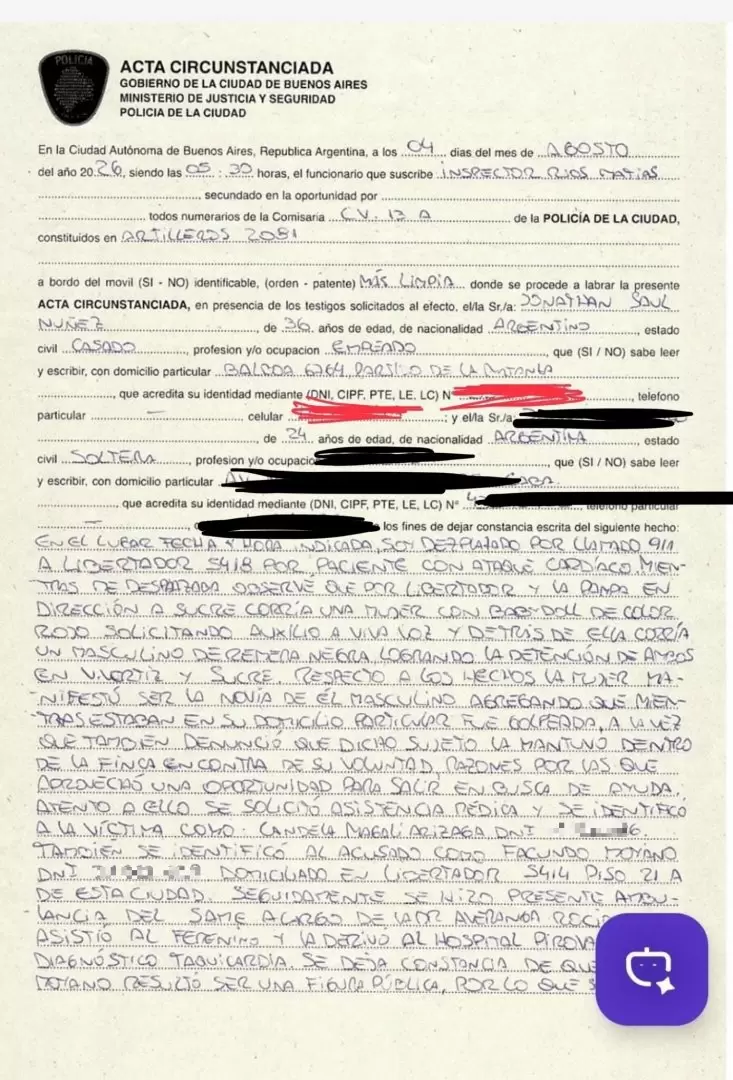 POLICIA
ACTA CIRCUNSTANCIADA
GOBIERNO DE LA CIUDAD DE BUENOS AIRES
MINISTERIO DE JUSTICIA Y SEGURIDAD
POLICIA DE LA CIUDAD
En la Ciudad Autónoma de Buenos Aires, Republica Argentina, a los 04 dias del mes de AGOSTO
del año 2026, siendo las 05:30 horas, el funcionario que suscribe INSPECTOR RIOS MATIAS
secundado en la oportunidad por
todos numerarios de la Comisaria CV. 13 A de la POLICÍA DE LA CIUDAD,
constituidos en ARTILLEROS 2081
a bordo del movil (SI - NO) identificable, (orden - patente) MÁS LIMPIA donde se procede a labrar la presente
ACTA CIRCUNSTANCIADA, en presencia de los testigos solicitados al efecto, el/la Sr./a: JONATHAN SAUL
NUÑEZ, de 36 años de edad, de nacionalidad ARGENTINO, estado
civil CASADO, profesion y/o ocupacion EMPEADO, que (SI / NO) sabe leer
y escribir, con domicilio particular 6264 PARTIDO DE LA MATANZA
, que acredita su identidad mediante (DNI, CIPF, PTE, LE, LC) N°, telefono
particular - celular ; y el/la Sr./a:
, de 24 años de edad, de nacionalidad ARGENTINA, estado
civil SOLTERA, profesion y/o ocupacio, que (SI / NO) sabe leer
y escribir, con domicilio particular
, que acredita su identidad mediante (DNI, CIPF, PTE, LE, LC) N° telefono particular
- los fines de dejar constancia escrita del siguiente hecho:
EN EL LUGAR FECHA Y HORA INDICADA, SOY DEZPLAZADO POR LLAMADO 911
A LIBERTADOR 5418 POR PACIENTE CON ATAQUE CARDÍACO. MIEN-
TRAS ME DESPAZABA OBSERVE QUE POR LIBERTADOR Y LA PAMPA EN
DIRECCIÓN A SUCRE CORRÍA UNA MUJER CON BABYDOLL DE COLOR
ROJO SOLICITANDO AUXILIO A VIVA VOZ Y DETRÁS DE ELLA CORRÍA
UN MASCULINO DE REMERA NEGRA, LOGRANDO LA DETENCIÓN DE AMBOS
EN Y SUCRE. RESPECTO A LOS HECHOS LA MUJER MA-
NIFESTÓ SER LA NOVIA DE ÉL MASCULINO AGREGANDO QUE MIEN-
TRAS ESTABAN EN SU DOMICILIO PARTICULAR FUE GOLPEADA, A LA VEZ
QUE TAMBIÉN DENUNCIÓ QUE DICHO SUJETO LA MANTUVO DENTRO
DE LA FINCA EN CONTRA DE SU VOLUNTAD, RAZONES POR LAS QUE
APROVECHÓ UNA OPORTUNIDAD PARA SALIR EN BUSCA DE AYUDA.
ATENTO A ELLO SE SOLICITÓ ASISTENCIA MÉDICA Y SE IDENTIFICÓ
A LA VÍCTIMA COMO: CANDELA MAGALI ARIZAGA DNI 6.
TAMBIÉN SE IDENTIFICÓ AL ACUSADO COMO FACUNDO MOYANO
DNI DOMICILIADO EN LIBERTADOR 5414 PISO 21 A
DE ESTA CIUDAD. SEGUIDAMENTE SE HIZO PRESENTE AMBU-
LANCIA DEL SAME A CARGO DE LA DR. AVERANGA
ASISTIÓ AL FEMENINO Y LA DERIVÓ AL HOSPITAL
DIAGNÓSTICO TAQUICARDIA. SE DEJA CONSTANCIA DE QUE
MOYANO RESULTÓ SER UNA FIGURA PÚBLICA, POR LO QUE